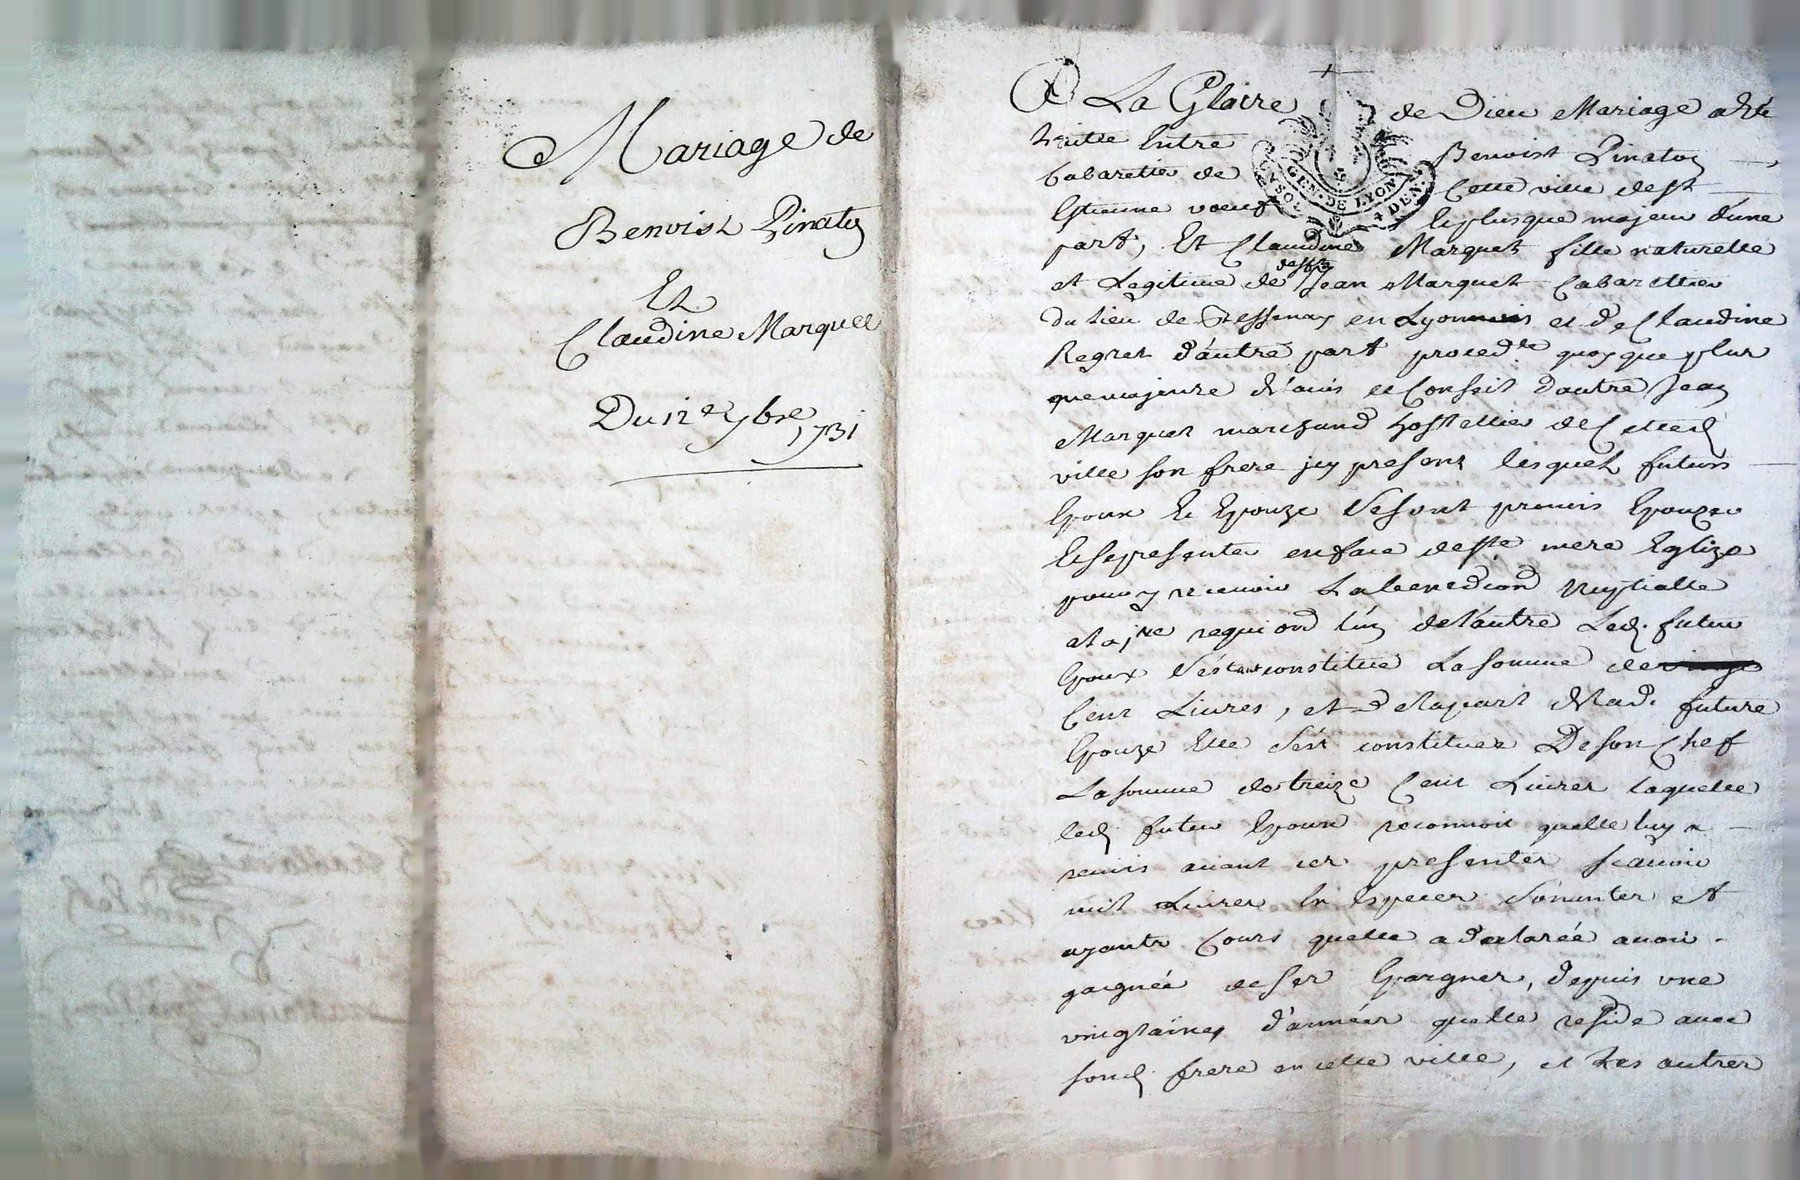 Mariage de
Benoist Pinatoy
Et
Claudine Marquet
Du 12e 7bre 1731
A La Gloire de Dieu Mariage a Eté
traitté Entre Benoist Pinatoy
Cabarettier de Cette ville de St
Estienne voeuf le plus que majeur d'une
part, Et Claudine Marquet fille naturelle
et Legitime de defft Jean Marquet Cabarettier
du lieu de en Lyonnois et de Claudine
Regret d'autre part proced.te quoy que plus
que majeure de l'avis et Conseil d'autre Jean
Marquet marchand hostellier de Cetted.
ville son frere icy present lesquels futurs
Epoux Et Epouze Se sont promis Epouzer
Et se presenter en face de ste mere Eglize
pour y recevoir La benediction Nuptialle
et a j.re requiond l'un de l'autre Led. futur
Epoux S'est constitué La somme de
Cent Livres, et de la part de lad. future
Epouze Elle s'est constituez De son Chef
La somme de treize Cent Livres laquelle
led. futur Epoux reconnoit quelle luy a
remis avant ces presentes scavoir
mil Livres En Especes Sonantes et
ayants Cours quelle a declarée avoir
gaignée de ses Epargnes, depuis une
vingtaine d'années quelle reside avec
sond. frere en cette ville, et Les autres
GEN. DE LYON
4 DEN.